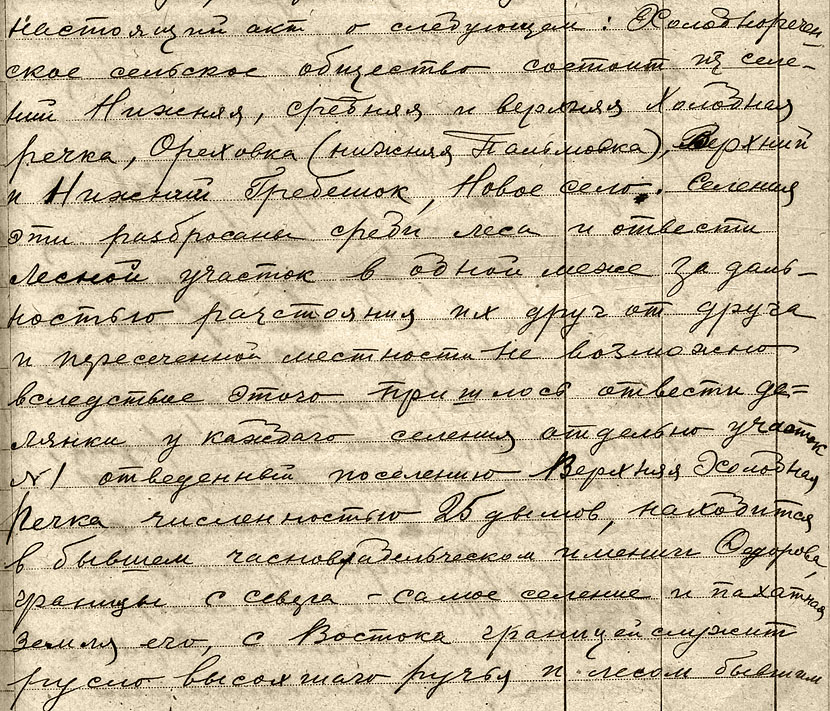 настоящий акт о следующем: Холоднореченское
ское сельское общество состоит из селе-
ний Нижняя, средняя и верхняя Холодная
речка, Ореховка (нижняя Пальмовка), Верхний
и Нижний Гребешок, Новое село. Селения
эти разбросаны среди леса и отвести
лесной участок в одной меже за даль-
ностью разстояния их друг от друга
и пересеченной местности не возможно
вследствие этого пришлось отвести де-
лянки у каждаго селения отдельно участок
№1 отведенный поселению Верхняя Холодная
Речка численностью 25 дымов, находится
в бывшем часновладельческом имении
границы с севера - самое селение и пахатная
земля его, с Востока границей служит
русло высохшаго ручья и лесом бывшим